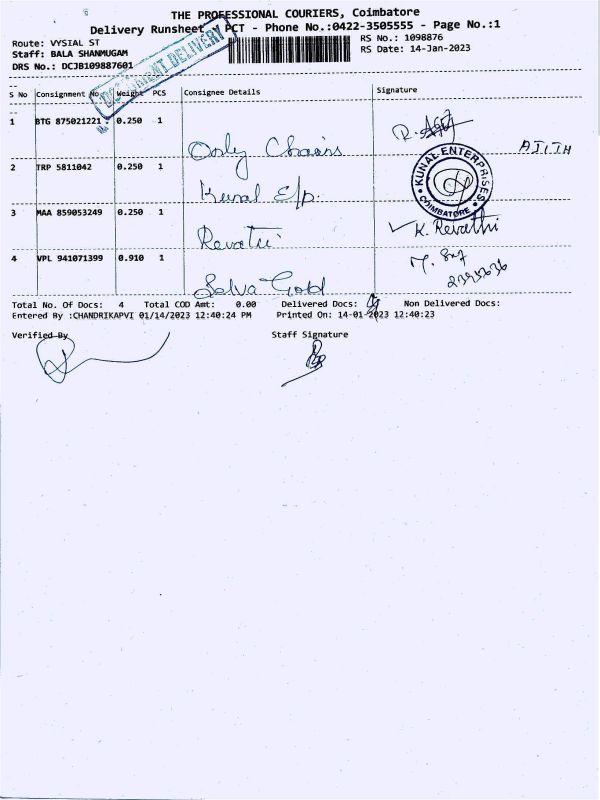 THE PROFESSIONAL COURIERS, Coimbatore
Delivery Runsheet PCT - Phone No.:0422-3505555 - Page No.:1
Route: VYSIAL ST
RS No.: 1098876
Staff: BALA SHANMUGAM
RS Date: 14-Jan-2023
DRS No.: DCJB109887601
DOCUMENT DELIVERY
S No Consignment No. Weight PCS Consignee Details Signature
1 BTG 875021221 0.250 1 Only Chairs
AJITH
2 TRP 5811042 0.250 1 Kunal E/p.
KUNAL ENTERPRISES
COIMBATORE
3 MAA 859053249 0.250 1 Revathi K. Revathi
4 VPL 941071399 0.910 1 Selva Gold
Total No. Of Docs: 4 Total COD Amt: 0.00 Delivered Docs: Non Delivered Docs:
Entered By :CHANDRIKAPVI 01/14/2023 12:40:24 PM Printed On: 14-01-2023 12:40:23
Verified By Staff Signature